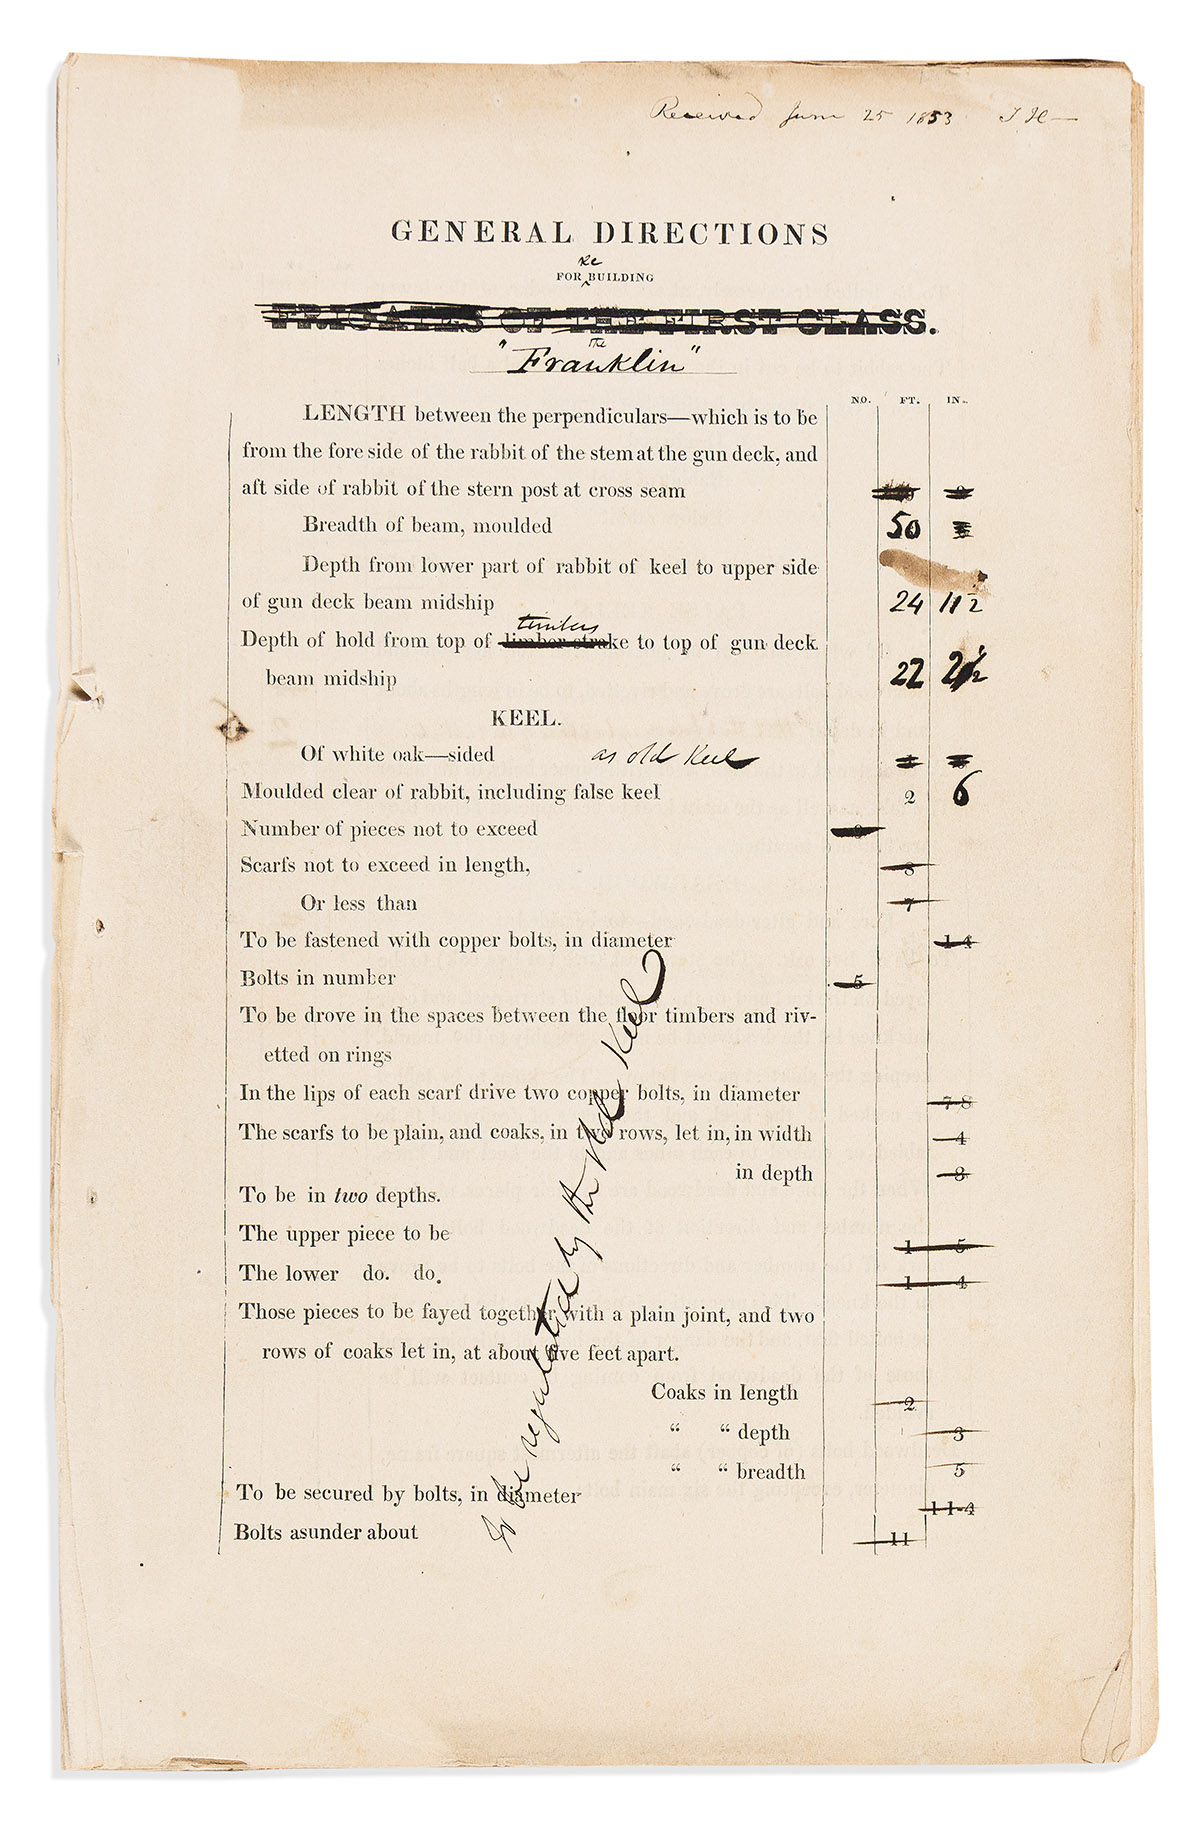 Received June 25 1853 J H—
GENERAL DIRECTIONS
re
FOR ^ BUILDING
FRIGATES OF THE FIRST CLASS.
the
"Franklin"
NO. FT. IN.
LENGTH between the perpendiculars—which is to be
from the fore side of the rabbit of the stem at the gun deck, and
aft side of rabbit of the stern post at cross seam
Breadth of beam, moulded 50
Depth from lower part of rabbit of keel to upper side
of gun deck beam midship 24 11 1/2
timbers
Depth of hold from top of limber strake to top of gun deck
beam midship 22 2 1/2
KEEL.
Of white oak—sided as old Keel
Moulded clear of rabbit, including false keel 2 6
Number of pieces not to exceed
Scarfs not to exceed in length, 8
Or less than 7
To be fastened with copper bolts, in diameter 1 4
Bolts in number 5
To be drove in the spaces between the floor timbers and riv-
etted on rings
In the lips of each scarf drive two copper bolts, in diameter 7-8
The scarfs to be plain, and coaks, in two rows, let in, in width 4
in depth 3
To be in two depths.
The upper piece to be 1 5
The lower do. do. 1 4
Those pieces to be fayed together with a plain joint, and two
rows of coaks let in, at about five feet apart.
Coaks in length 2
" " depth 3
" " breadth 5
To be secured by bolts, in diameter 1 1-4
Bolts asunder about 11
to be regulated by the old Keel